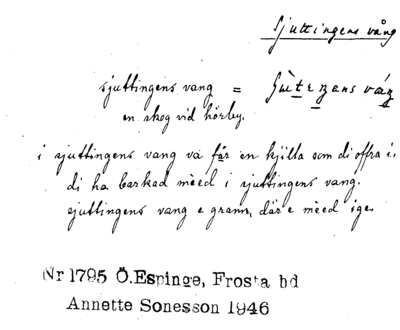 Sjuttingens vång
sjuttingens vang =
en skog vid hörby.
i sjuttingens vang va får en kjilla som di offra i.
di ha barkad mèed i sjuttingens vang.
sjuttingens vang e grann, där e mèed ige.
Nr 1795 Ö.Espinge, Frosta hd
Annette Sonesson 1946